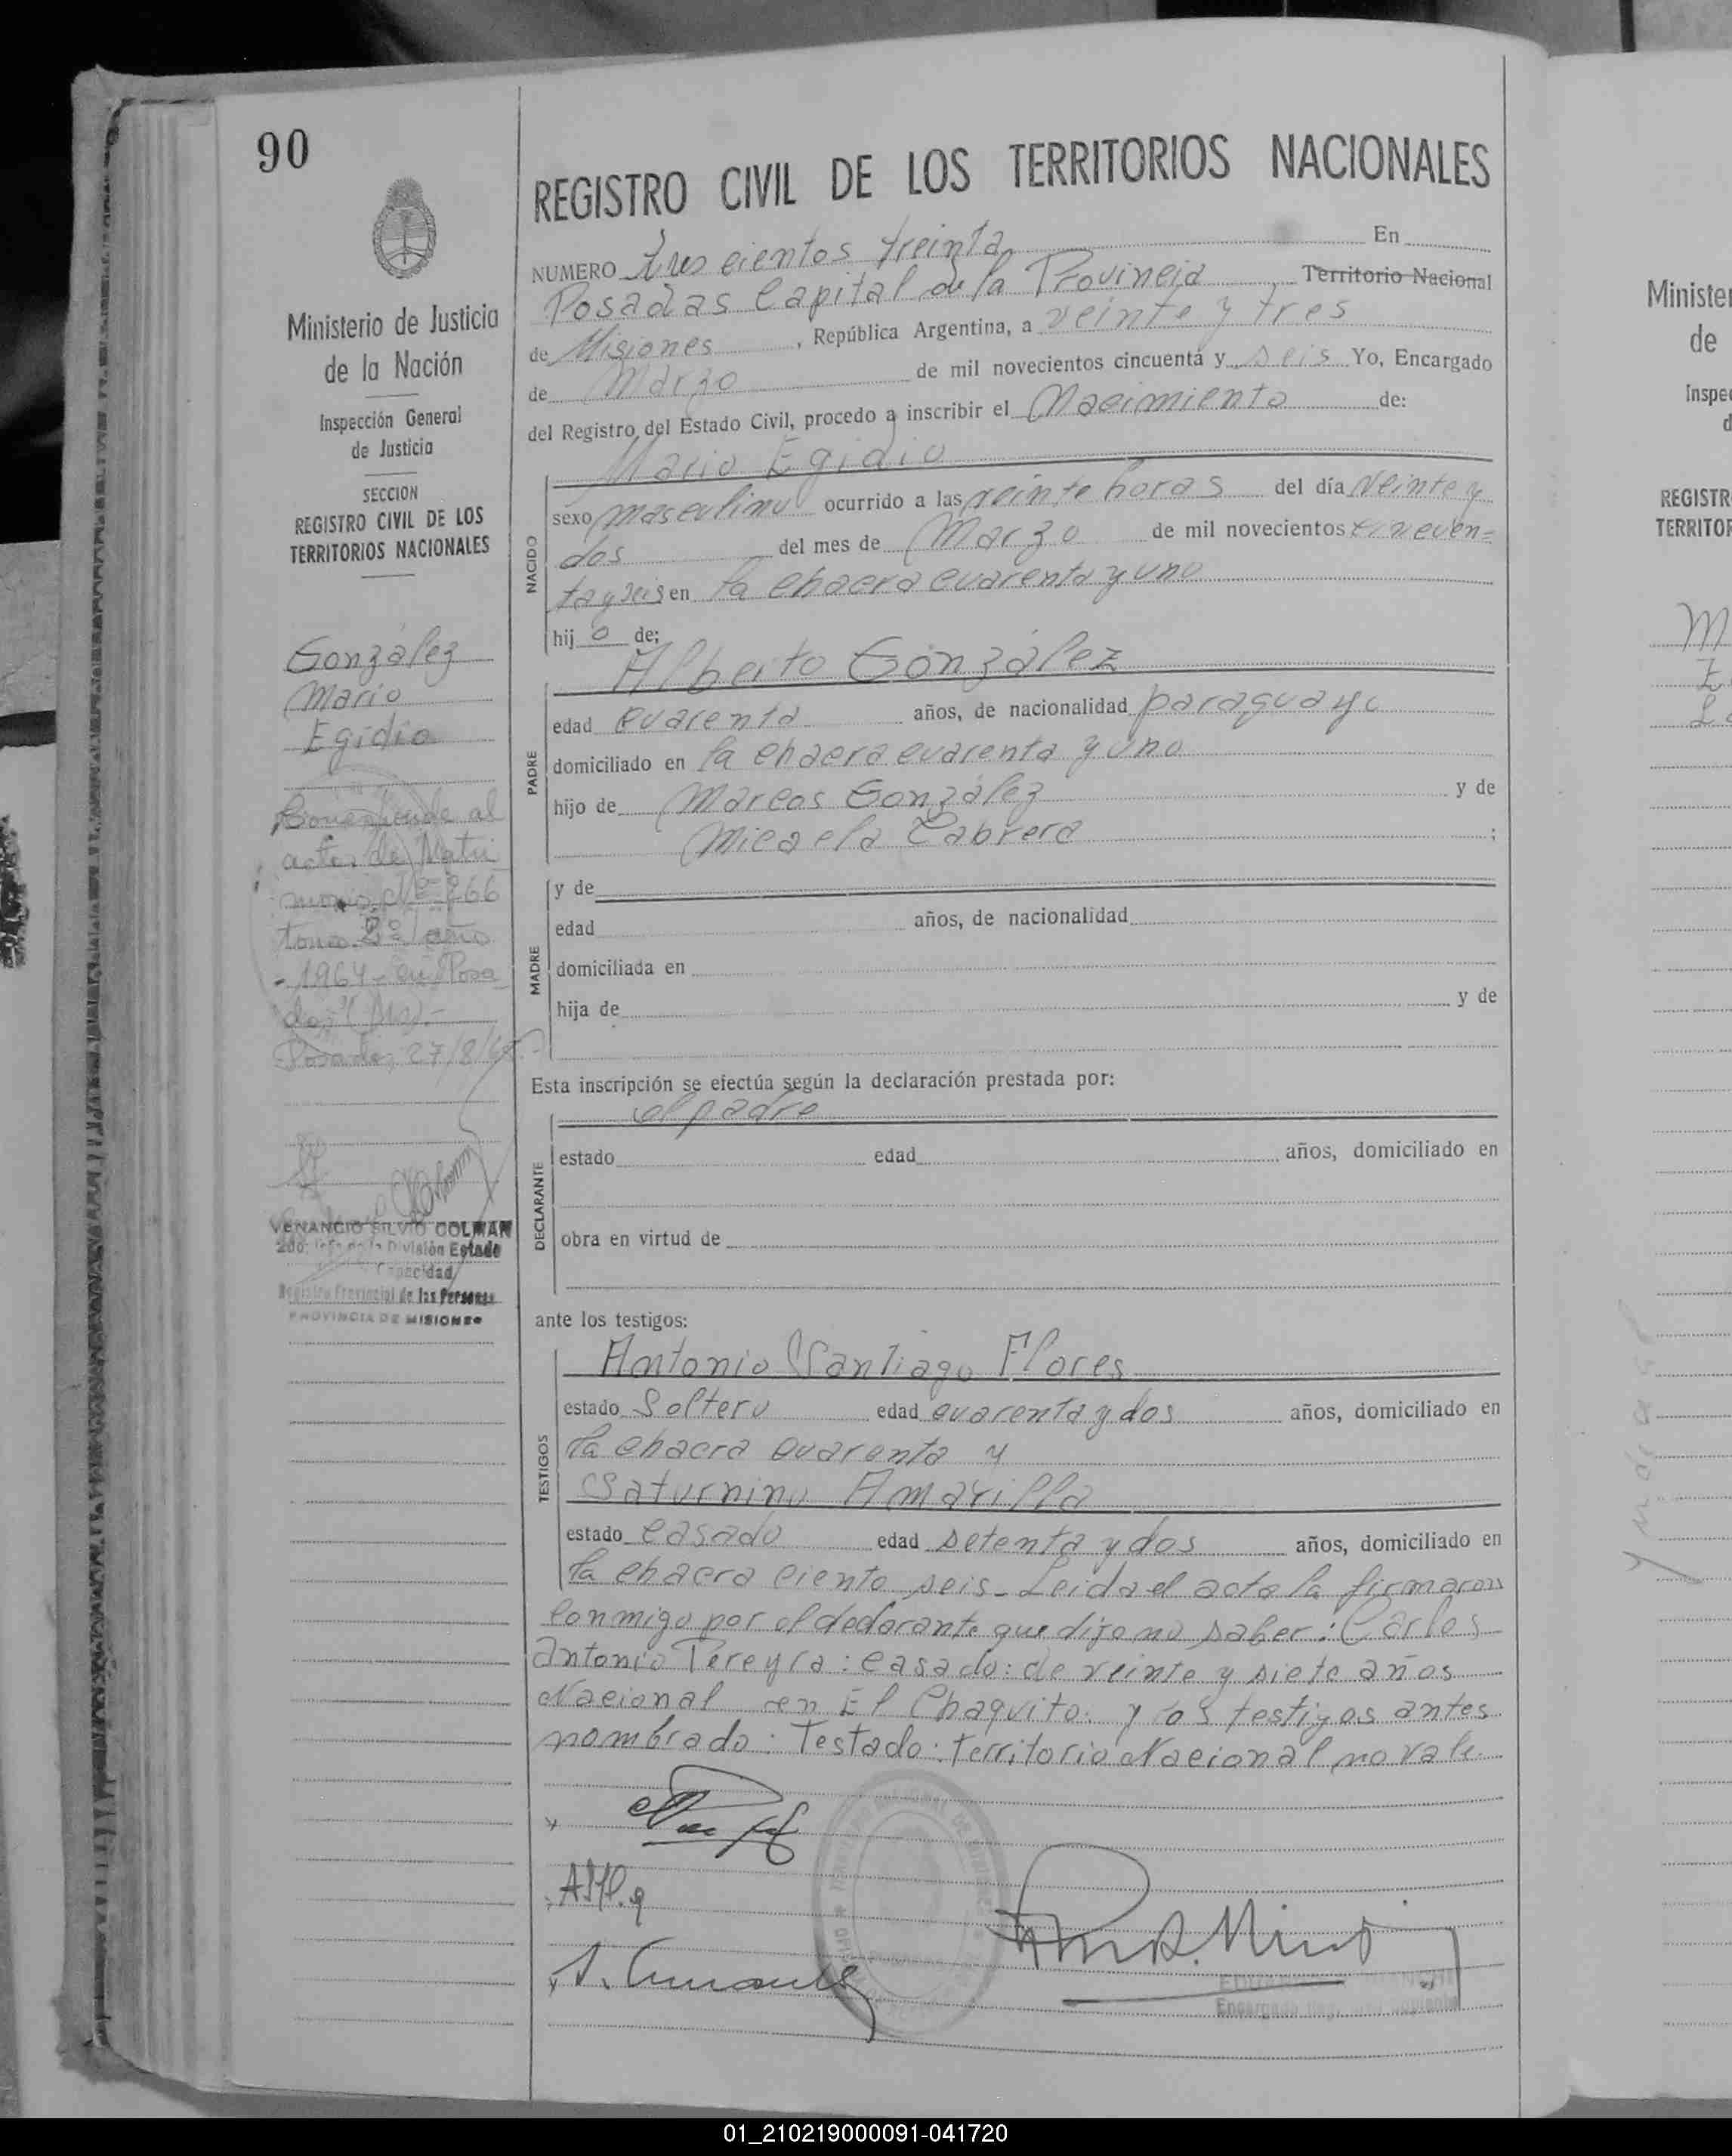 90
Ministerio de Justicia
de la Nación
Inspección General
de Justicia
SECCION
REGISTRO CIVIL DE LOS
TERRITORIOS NACIONALES
González
Mario
Egidio
Corresponde al
acta de Matri
monio Nº 266
tomo 2º año
- 1964 - en Posa
das (Mns).-
Posadas, 27/8/
VENANCIO SILVIO COLMAN
2do. Jefe de la División Estado
Capacidad
Registro Provincial de las Personas
PROVINCIA DE MISIONES
REGISTRO CIVIL DE LOS TERRITORIOS NACIONALES
NUMERO tres cientos treinta En
Posadas Capital de la Provincia Territorio Nacional
de Misiones, República Argentina, a veinte y tres
de Marzo de mil novecientos cincuenta y seis Yo, Encargado
del Registro del Estado Civil, procedo a inscribir el Nacimiento de:
NACIDO
Mario Egidio
sexo masculino ocurrido a las veinte horas del día veinte y
dos del mes de Marzo de mil novecientos cincuen=
ta y seis en la chacra cuarenta y uno
hijo de:
PADRE
Alberto González
edad cuarenta años, de nacionalidad paraguayo
domiciliado en la chacra cuarenta y uno
hijo de Marcos González y de
Micaela Cabrera ;
MADRE
y de
edad años, de nacionalidad
domiciliada en
hija de y de
Esta inscripción se efectúa según la declaración prestada por:
DECLARANTE
el padre
estado edad años, domiciliado en
obra en virtud de
ante los testigos:
TESTIGOS
Antonio Santiago Flores
estado Soltero edad cuarenta y dos años, domiciliado en
la chacra cuarenta y
Saturnino Amarilla
estado casado edad setenta y dos años, domiciliado en
la chacra ciento seis_ Leida el acta la firmaron
conmigo por el declarante que dijo no saber: Carlos
Antonio Pereyra: casado: de veinte y siete años
Nacional en El Chaquito. y los testigos antes
nombrado: Testado: Territorio Nacional no vale.
Ministe
de
Inspe
d
REGISTR
TERRITOR
M
01_210219000091-041720